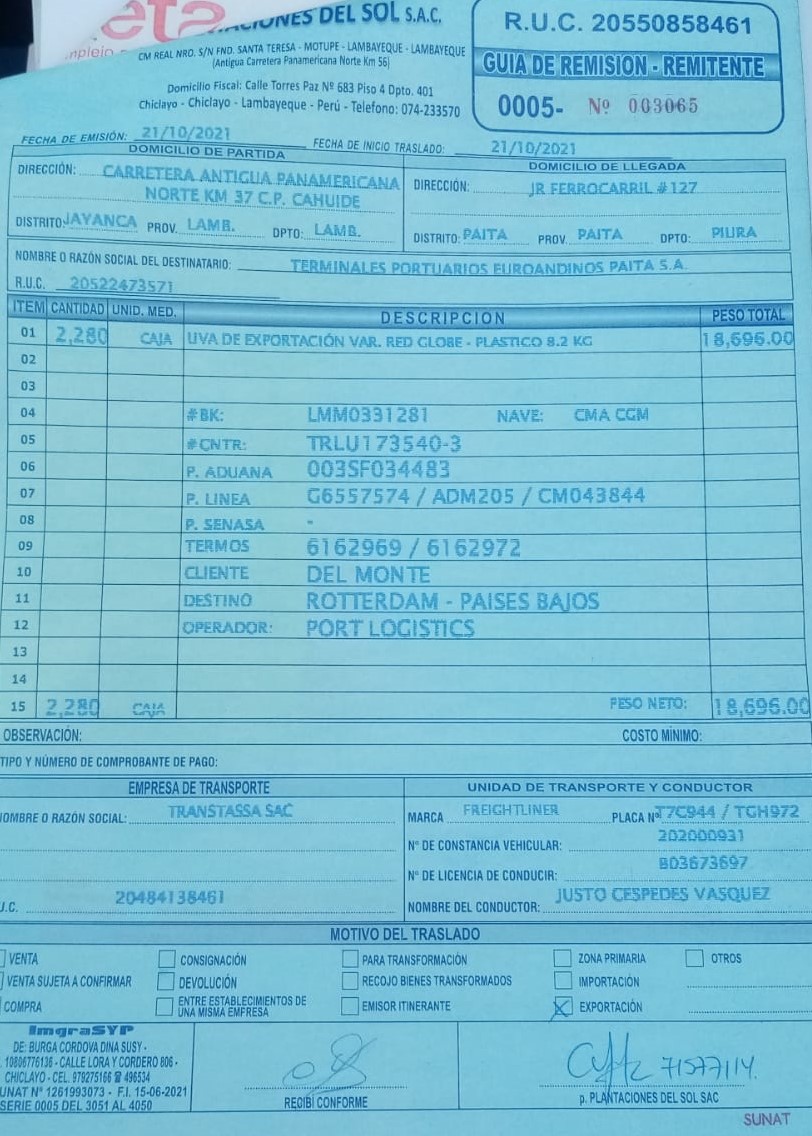 eta
mplejo
CIONES DEL SOL S.A.C.
CM REAL NRO. S/N FND. SANTA TERESA - MOTUPE - LAMBAYEQUE - LAMBAYEQUE
(Antigua Carretera Panamericana Norte Km 56)
Domicilio Fiscal: Calle Torres Paz Nº 683 Piso 4 Dpto. 401
Chiclayo - Chiclayo - Lambayeque - Perú - Telefono: 074-233570
R.U.C. 20550858461
GUIA DE REMISION - REMITENTE
0005- Nº 003065
FECHA DE EMISIÓN: 21/10/2021 FECHA DE INICIO TRASLADO: 21/10/2021
DOMICILIO DE PARTIDA
DIRECCIÓN: CARRETERA ANTIGUA PANAMERICANA
NORTE KM 37 C.P. CAHUIDE
DISTRITO: JAYANCA PROV. LAMB. DPTO: LAMB.
DOMICILIO DE LLEGADA
DIRECCIÓN: JR FERROCARRIL #127
DISTRITO: PAITA PROV. PAITA DPTO: PIURA
NOMBRE O RAZÓN SOCIAL DEL DESTINATARIO: TERMINALES PORTUARIOS EUROANDINOS PAITA S.A.
R.U.C. 20522473571
ITEM CANTIDAD UNID. MED. DESCRIPCION PESO TOTAL
01 2,280 CAJA UVA DE EXPORTACIÓN VAR. RED GLOBE - PLASTICO 8.2 KG 18,696.00
02
03
04 #BK: LMM0331281 NAVE: CMA CGM
05 #CNTR: TRLU173540-3
06 P. ADUANA 003SF034483
07 P. LINEA G6557574 / ADM205 / CM043844
08 P. SENASA -
09 TERMOS 6162969 / 6162972
10 CLIENTE DEL MONTE
11 DESTINO ROTTERDAM - PAISES BAJOS
12 OPERADOR: PORT LOGISTICS
13
14
15 2,280 CAJA PESO NETO: 18,696.00
OBSERVACIÓN: COSTO MÍNIMO:
TIPO Y NÚMERO DE COMPROBANTE DE PAGO:
EMPRESA DE TRANSPORTE
NOMBRE O RAZÓN SOCIAL: TRANSTASSA SAC
U.C. 20484138461
UNIDAD DE TRANSPORTE Y CONDUCTOR
MARCA FREIGHTLINER PLACA Nº T7C944 / TGH972
Nº DE CONSTANCIA VEHICULAR: 202000931
Nº DE LICENCIA DE CONDUCIR: B03673697
NOMBRE DEL CONDUCTOR: JUSTO CESPEDES VASQUEZ
MOTIVO DEL TRASLADO
VENTA CONSIGNACIÓN PARA TRANSFORMACIÓN ZONA PRIMARIA OTROS
VENTA SUJETA A CONFIRMAR DEVOLUCIÓN RECOJO BIENES TRANSFORMADOS IMPORTACIÓN
COMPRA ENTRE ESTABLECIMIENTOS DE UNA MISMA EMPRESA EMISOR ITINERANTE X EXPORTACIÓN
ImgraSYP
DE: BURGA CORDOVA DINA SUSY -
10806776136 - CALLE LORA Y CORDERO 806 -
CHICLAYO - CEL. 978275166 ☎ 496534
UNAT Nº 1261993073 - F.I. 15-06-2021
SERIE 0005 DEL 3051 AL 4050
RECIBÍ CONFORME
71577114
p. PLANTACIONES DEL SOL SAC
SUNAT